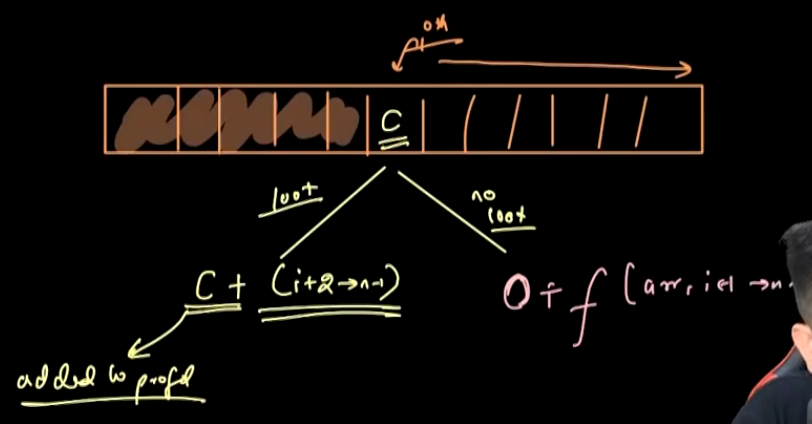 C
loot
no
loot
C + (i+2→n-1)
0 + f (arr, i+1 →n-
added to profit